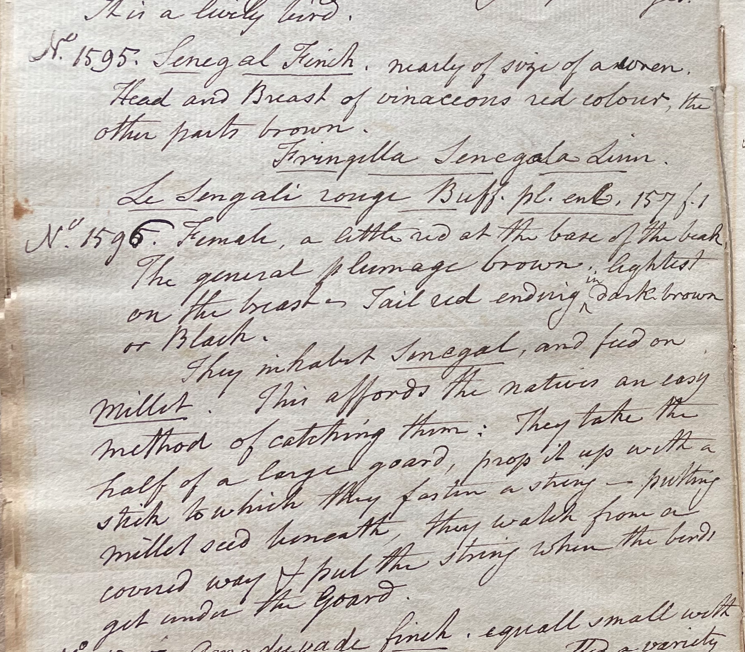 It is a lively bird.
No. 1595. Senegal Finch. nearly of size of a wren.
Head and Breast of vinaceous red colour, the
other parts brown.
Fringilla Senegala Linn.
Le Sengali rouge Buff. pl. enl. 157 f.1
No. 1596. Female, a little red at the base of the beak,
The general plumage brown, lightest
on the breast - Tail red ending in dark brown
or Black.
They inhabit Senegal, and feed on
Millet. This affords the natives an easy
method of catching them: They take the
half of a large goard, prop it up with a
stick to which they fasten a string - putting
millet seed beneath, they watch from a
covered way & pul the string when the birds
get under the Goard.
finch. equall small with
a variety